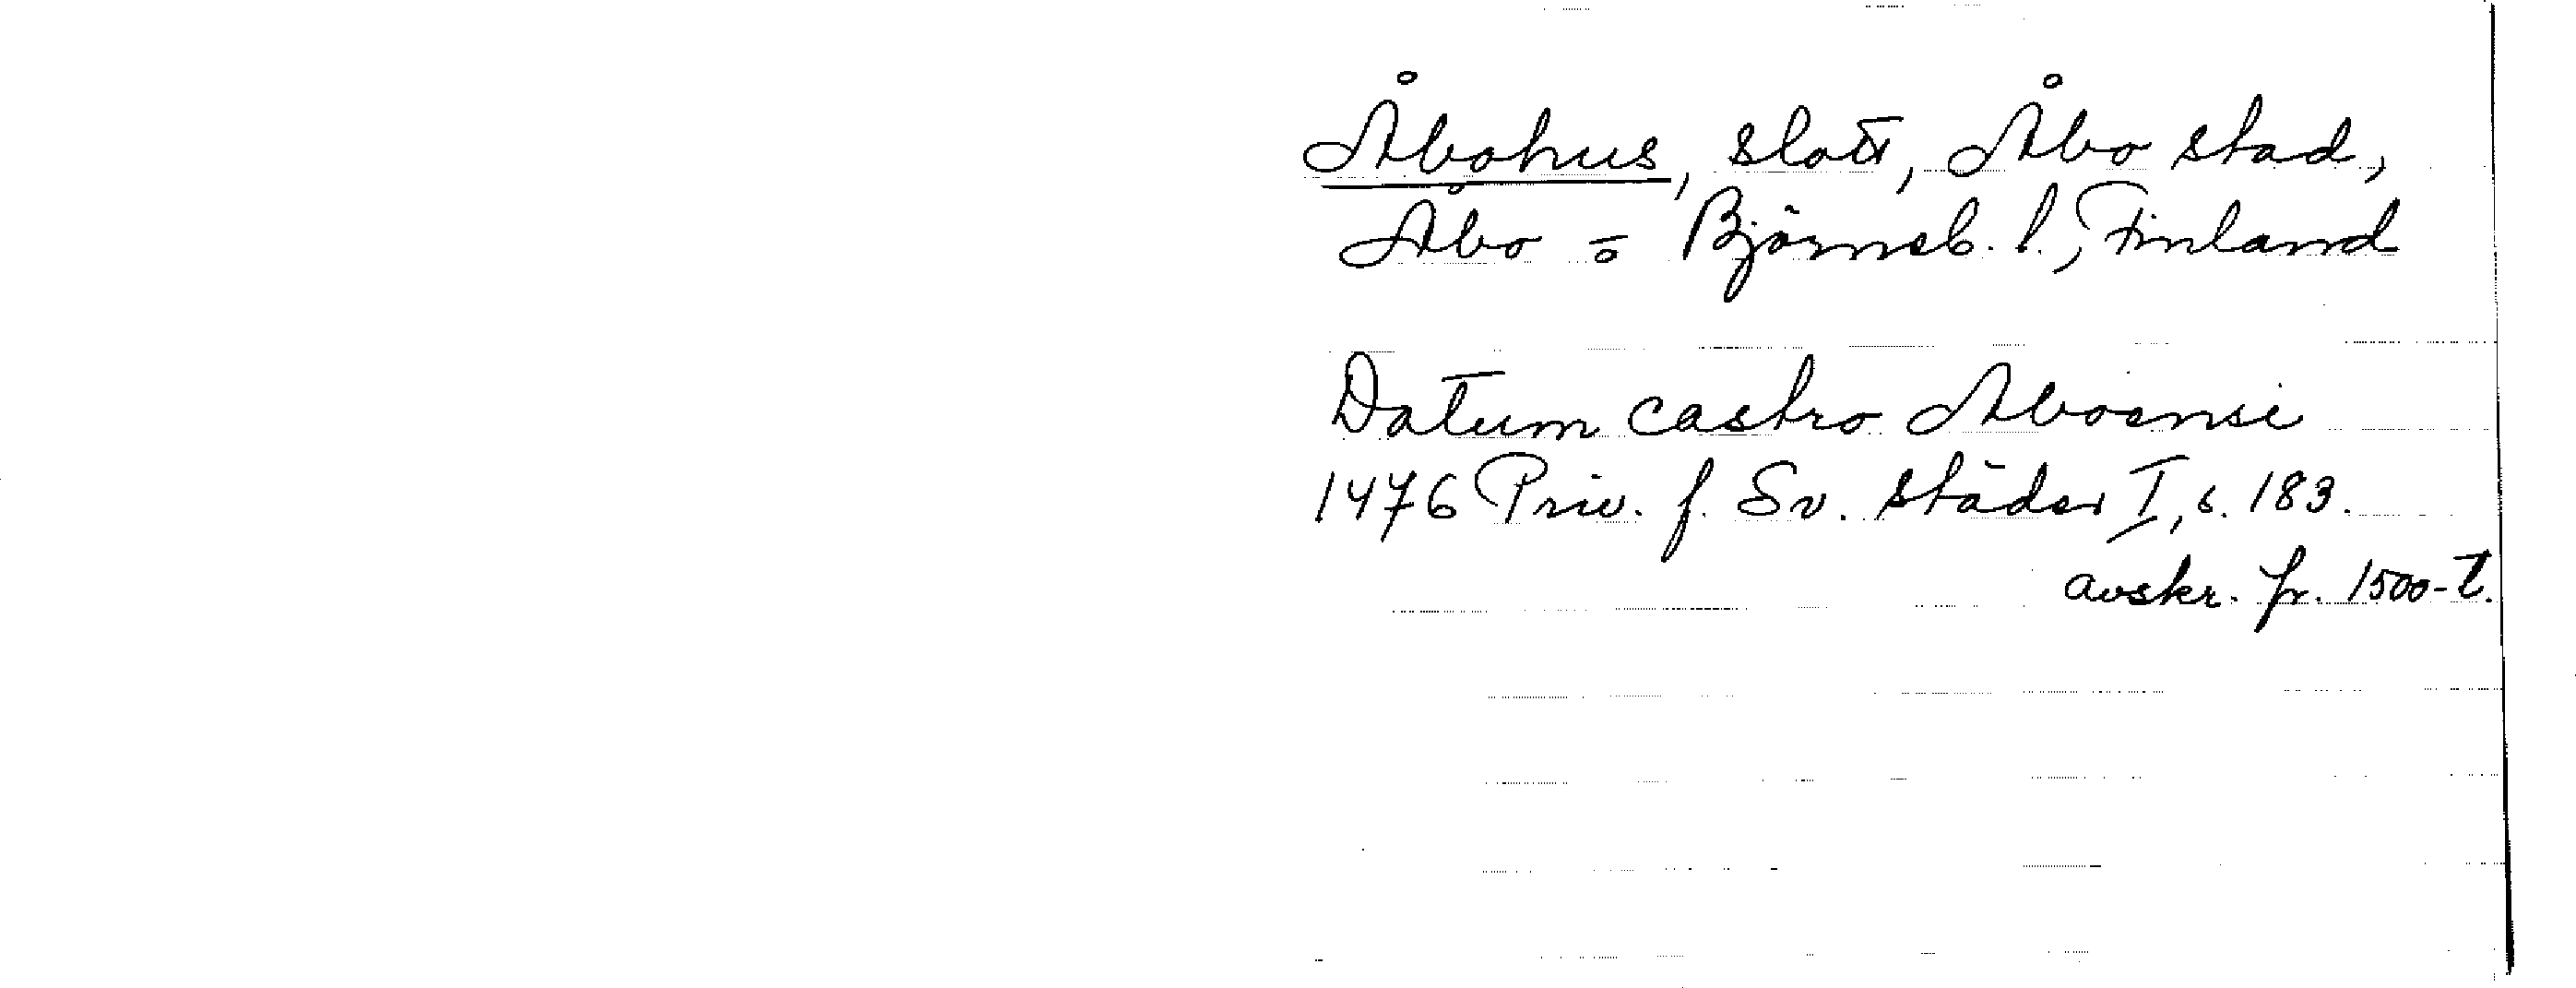 Åbohus, slott, Åbo stad,
Åbo o Björneb. l., Finland
Datum castro Aboensi
1476 Priv. f. Sv. städer I, s. 183.
avskr. fr. 1500-t.